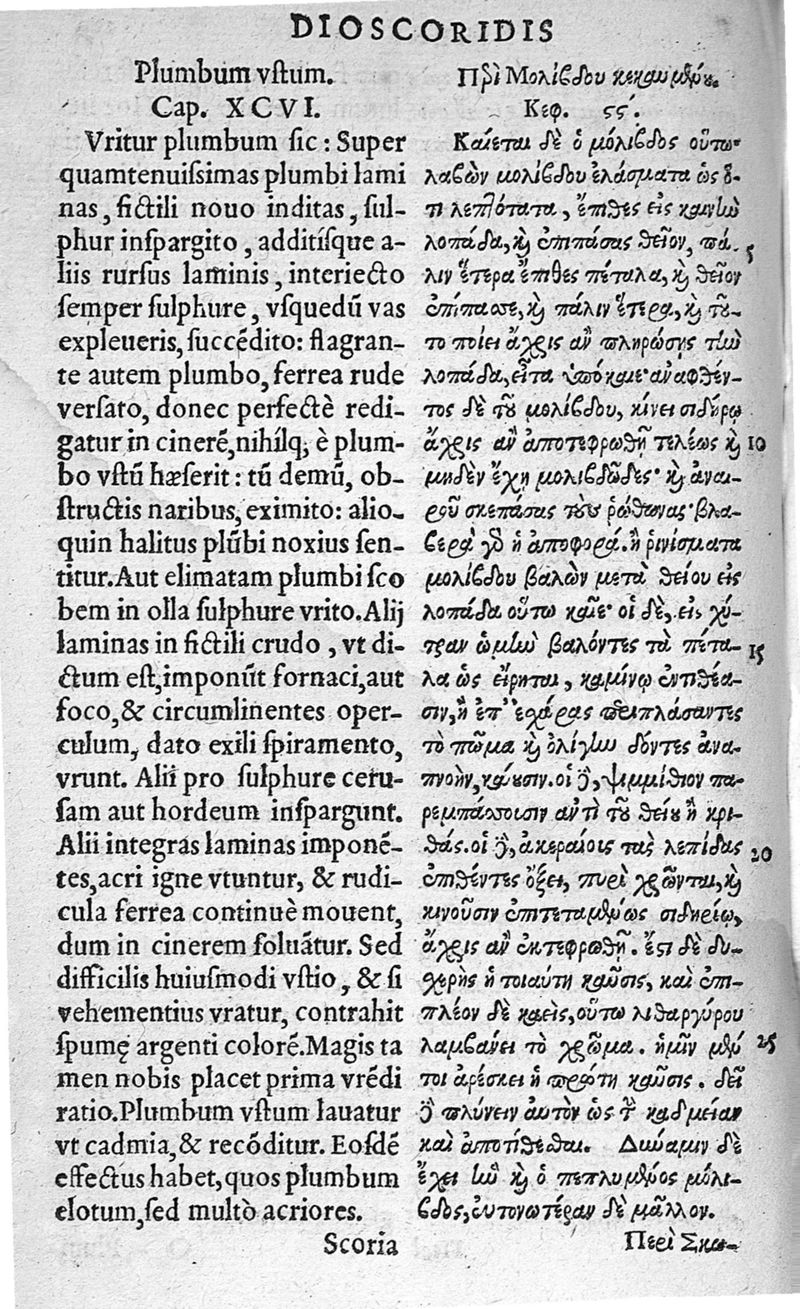 DIOSCORIDIS
Plumbum vſtum.
Cap. XCVI.
Vritur plumbum ſic : Super
quamtenuiſsimas plumbi lami
nas, fictili nouo inditas, ſul-
phur inſpargito, additíſque a-
liis rurſus laminis, interiecto
ſemper ſulphure, vſquedũ vas
expleueris, ſuccẽdito: flagran-
te autem plumbo, ferrea rude
verſato, donec perfectè redi-
gatur in cinerẽ, nihílq; è plum-
bo vſtũ hæſerit : tũ demũ, ob-
ſtructis naribus, eximito: alio-
quin halitus plũbi noxius ſen-
titur. Aut elimatam plumbi ſco
bem in olla ſulphure vrito. Alij
laminas in fictili crudo, vt di-
ctum eſt, imponũt fornaci, aut
foco, & circumlinentes oper-
culum, dato exili ſpiramento,
vrunt. Alii pro ſulphure ceru-
ſam aut hordeum inſpargunt.
Alii integras laminas imponẽ-
tes, acri igne vtuntur, & rudi-
cula ferrea continuè mouent,
dum in cinerem ſoluãtur. Sed
difficilis huiuſmodi vſtio, & ſi
vehementius vratur, contrahit
ſpumę argenti colorẽ. Magis ta
men nobis placet prima vrẽdi
ratio. Plumbum vſtum lauatur
vt cadmia, & recõditur. Eoſdẽ
effectus habet, quos plumbum
elotum, ſed multò acriores.
Scoria
Περὶ Μολίβδου κεκαυμένου.
Κεφ. ϛϛ΄.
Καίεται δὲ ὁ μόλιβδος οὕτω·
λαβὼν μολίβδου ἐλάσματα ὡς ὅ-
τι λεπτότατα, ἔπιθες εἰς καινὴν
λοπάδα, καὶ ἐπιπάσας θεῖον, πά-
5
λιν ἕτερα ἔπιθες πέταλα, καὶ θεῖον
ἐπίπασσε, καὶ πάλιν ἕτερα, καὶ τοῦ-
το ποίει ἄχρις ἂν πληρώσῃς τὴν
λοπάδα, εἶτα ὑπόκαιε· ἀναφθέν-
τος δὲ τοῦ μολίβδου, κίνει σιδήρῳ
ἄχρις ἂν ἀποτεφρωθῇ τελέως καὶ
10
μηδὲν ἔχῃ μολιβδῶδες· καὶ ἀναι-
ροῦ σκεπάσας τοὺς ῥώθωνας· βλα-
βερὰ γὰρ ἡ ἀποφορά. ἢ ῥινίσματα
μολίβδου βαλὼν μετὰ θείου εἰς
λοπάδα οὕτω καῖε· οἱ δὲ, εἰς χύ-
τραν ὠμὴν βαλόντες τὰ πέτα-
15
λα ὡς εἴρηται, καμίνῳ ἐντιθέα-
σιν, ἢ ἐπ’ ἐσχάρας περιπλάσαντες
τὸ πῶμα καὶ ὀλίγην δόντες ἀνα-
πνοὴν, καύουσιν. οἱ δὲ, ψιμμίθιον πα-
ρεμπάσσουσιν ἀντὶ τοῦ θείου ἢ κρι-
θάς. οἱ δὲ, ἀκεραίοις τὰς λεπίδας
20
ἐπιθέντες ὄξει, πυρὶ χρῶνται, καὶ
κινοῦσιν ἐπιτεταμένως σιδηρίῳ,
ἄχρις ἂν ἐκτεφρωθῇ. ἔστι δὲ δυ-
χερὴς ἡ τοιαύτη καῦσις, καὶ ἐπι-
πλέον δὲ καεὶς, οὕτω λιθαργύρου
λαμβάνει τὸ χρῶμα. ἡμῖν μέν
25
τοι ἀρέσκει ἡ πρώτη καῦσις. δεῖ
δὲ πλύνειν αὐτὸν ὡς τὴν καδμείαν
καὶ ἀποτίθεσθαι. Δύναμιν δὲ
ἔχει ἣν καὶ ὁ πεπλυμένος μόλι-
βδος, εὐτονωτέραν δὲ μᾶλλον.
Περὶ Σκω-